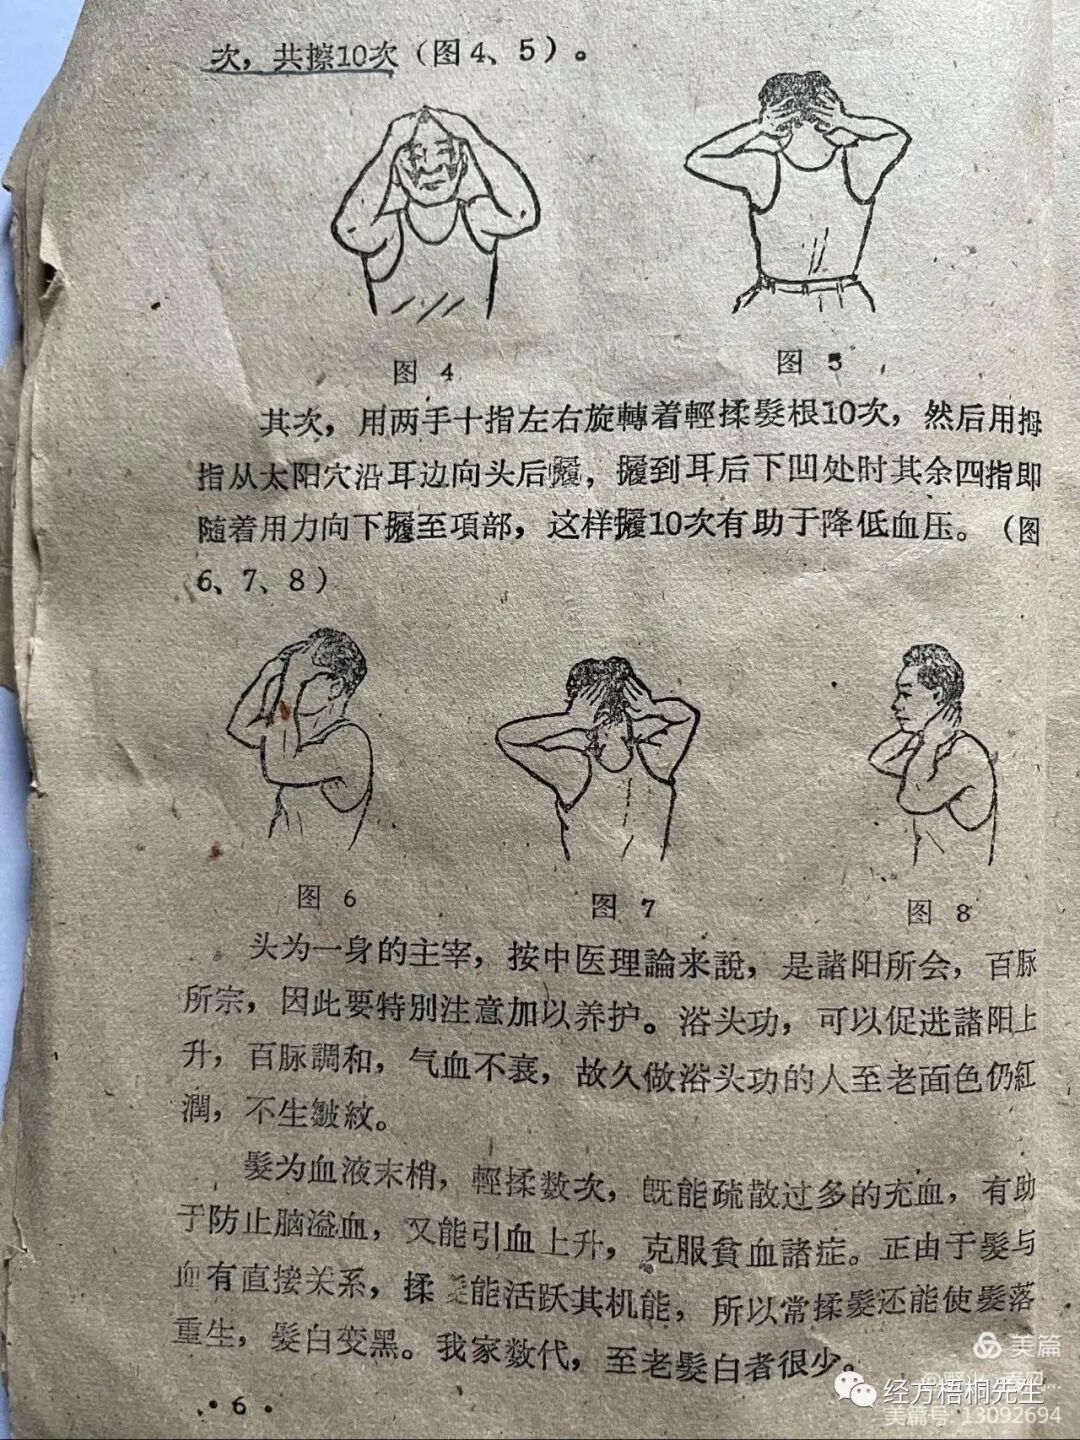 次，共擦10次（图4、5）。
图 4
图 5
其次，用两手十指左右旋轉着輕揉髮根10次，然后用拇
指从太阳穴沿耳边向头后攦，攦到耳后下凹处时其余四指即
随着用力向下攦至項部，这样攦10次有助于降低血压。（图
6、7、8）
图 6
图 7
图 8
头为一身的主宰，按中医理論来說，是諸阳所会，百脉
所宗，因此要特別注意加以养护。浴头功，可以促进諸阳上
升，百脉調和，气血不衰，故久做浴头功的人至老面色仍紅
潤，不生皺紋。
髮为血液末梢，輕揉数次，旣能疏散过多的充血，有助
于防止脑溢血，又能引血上升，克服貧血諸症。正由于髮与
血有直接关系，揉 能活跃其机能，所以常揉髮还能使髮落
重生，髮白变黑。我家数代，至老髮白者很少。
• 6 •
美篇
经方梧桐先生
美篇号: 13092694